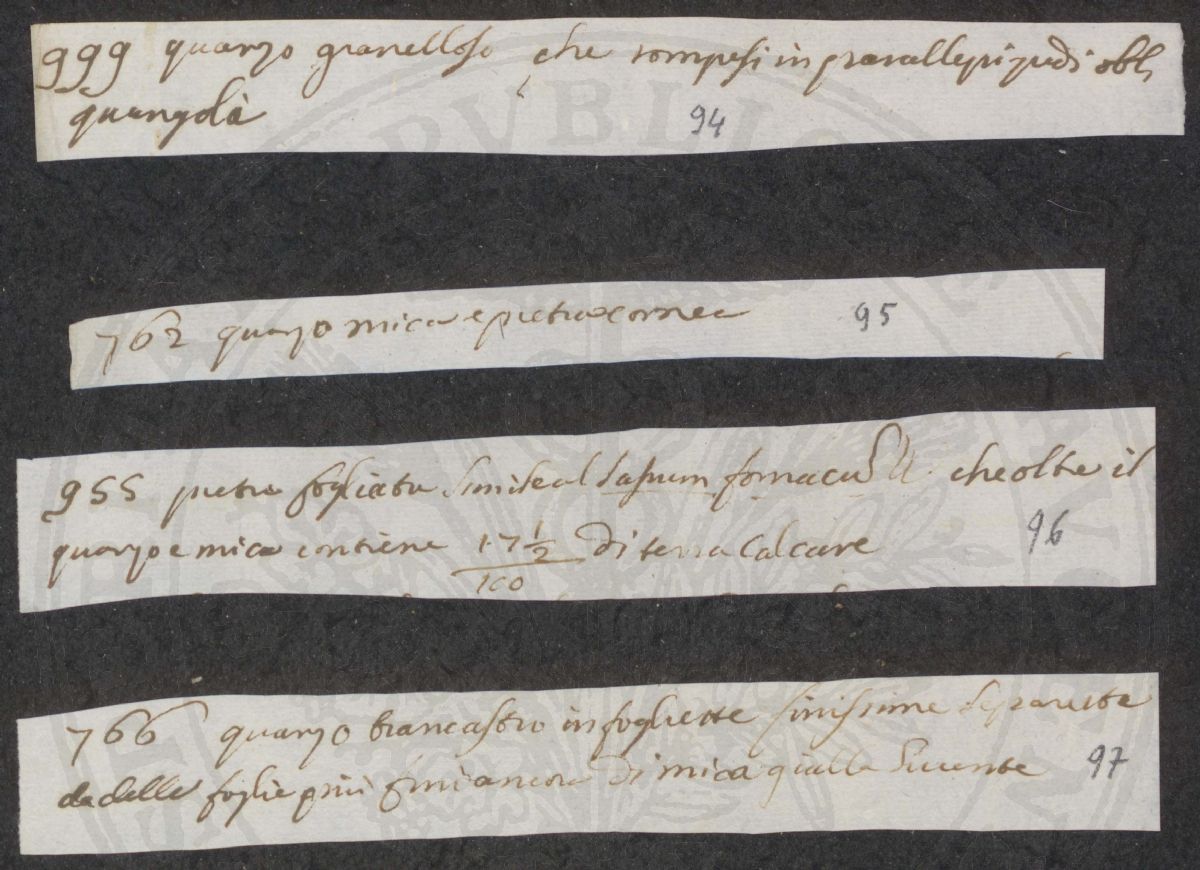 999 quarzo granelloso che rompesi in paralleppipedi obli
quangolà
94
762 quarzo mica e pietra cornea
95
955 pietra fogliata simile al saxum fornacum che oltre il
quarzo e mica contiene 17 1/2 / 100 di terra calcare
96
766 quarzo biancastro in fogliette finissime separate
da delle foglie più fini ancora di mica gialla lucente
97
PVBLIC